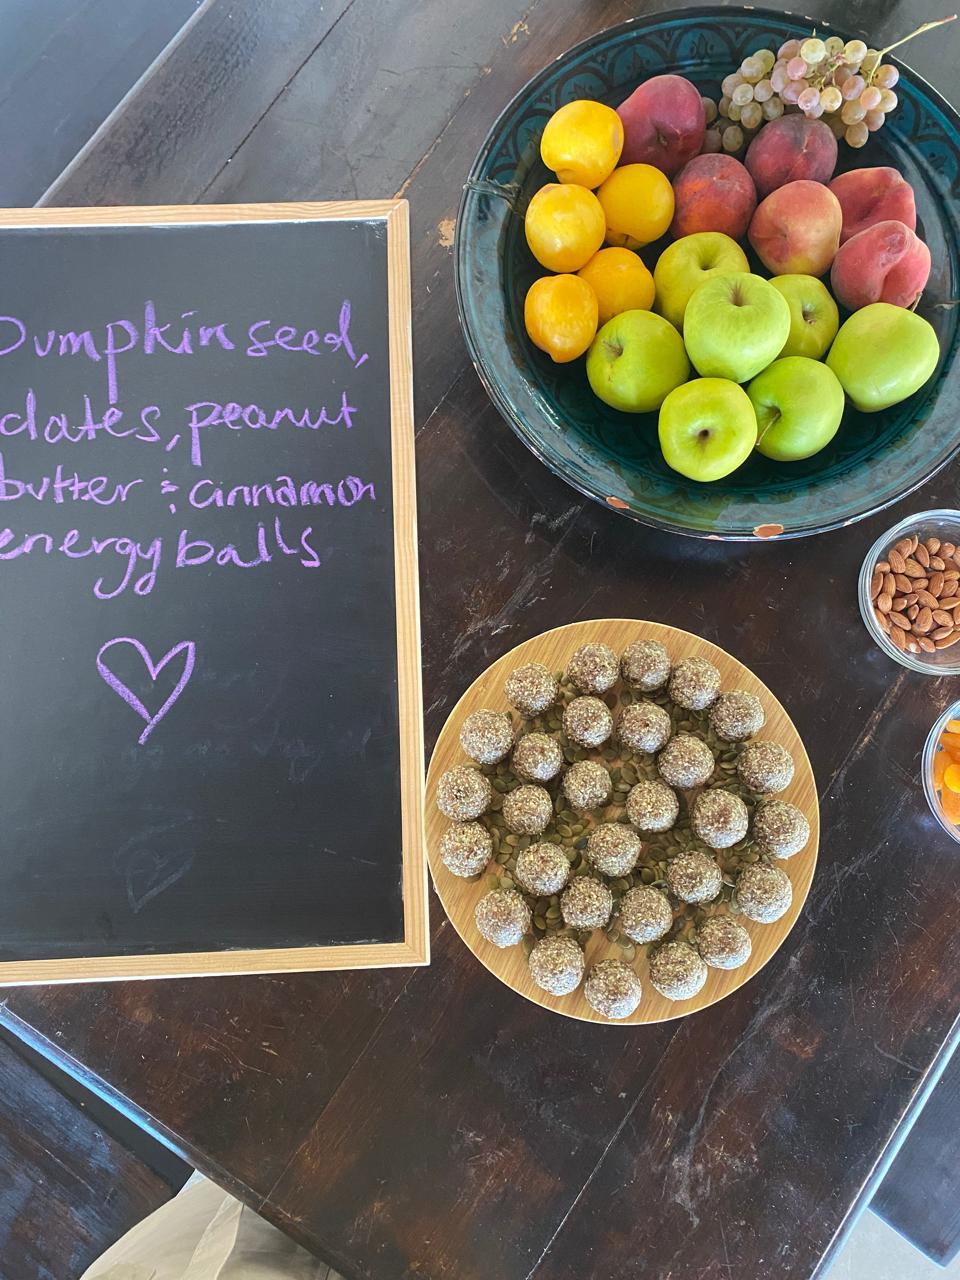 Pumpkin seed,
dates, peanut
butter & cinnamon
energy balls